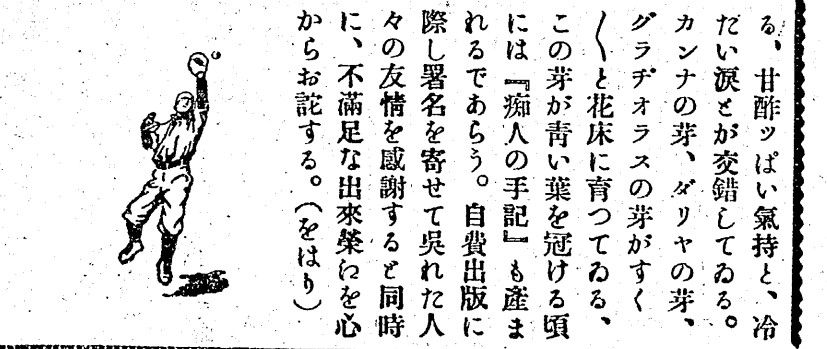 る、甘酢ッぱい氣持と、冷
だい涙とが交錯してゐる。
カンナの芽、ダリヤの芽、
グラヂオラスの芽がすく
〱と花床に育つてゐる、
この芽が靑い葉を冠ける頃
には『痴人の手記』も產ま
れるであらう。自費出版に
際し署名を寄せて吳れた人
々の友情を感謝すると同時
に、不滿足な出來榮わを心
からお詫する。(をはり)